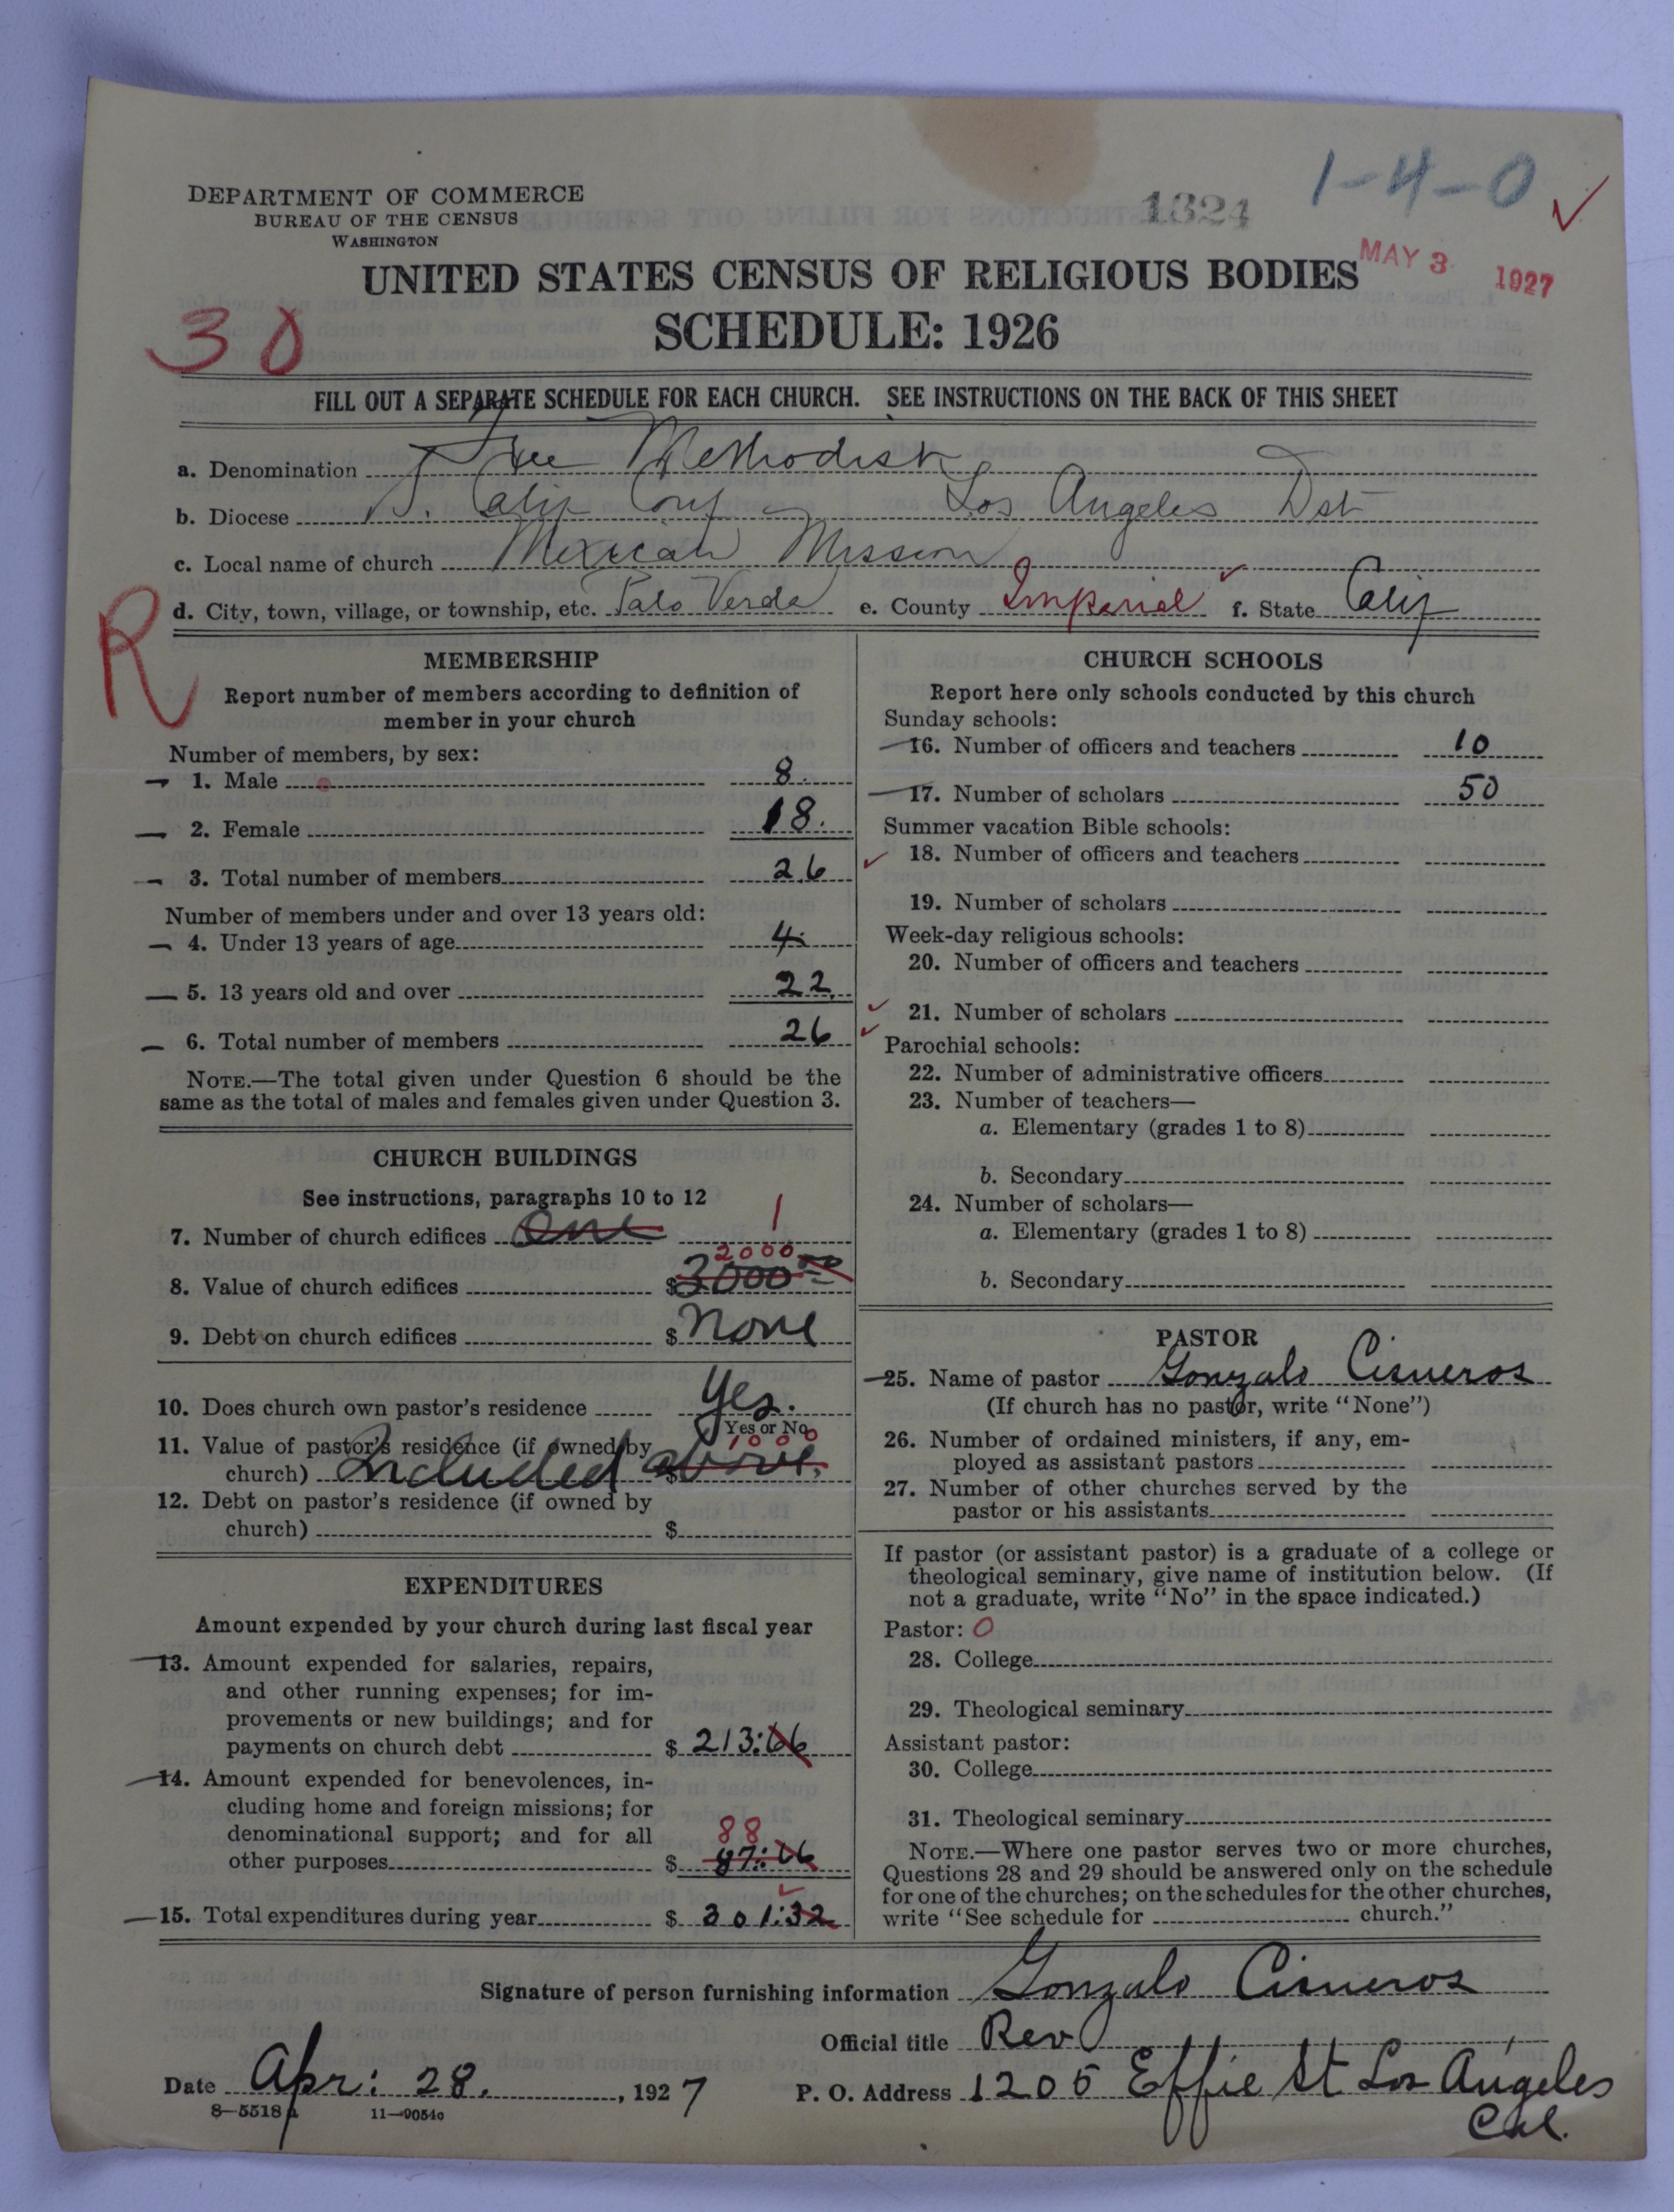 1-4-0
1324
DEPARTMENT OF COMMERCE
BUREAU OF THE CENSUS
WASHINGTON
MAY 3 1927
UNITED STATES CENSUS OF RELIGIOUS BODIES
SCHEDULE: 1926
30
FILL OUT A SEPARATE SCHEDULE FOR EACH CHURCH. SEE INSTRUCTIONS ON THE BACK OF THIS SHEET
a. Denomination Free Methodist
b. Diocese S. Calif Conf - Los Angeles Dst
c. Local name of church Mexican Mission
d. City, town, village, or township, etc. Palo Verde e. County Imperial f. State Calif
R
MEMBERSHIP
Report number of members according to definition of
member in your church
Number of members, by sex:
1. Male 8.
2. Female 18.
3. Total number of members 26
Number of members under and over 13 years old:
4. Under 13 years of age 4.
5. 13 years old and over 22.
6. Total number of members 26
NOTE.—The total given under Question 6 should be the
same as the total of males and females given under Question 3.
CHURCH BUILDINGS
See instructions, paragraphs 10 to 12
7. Number of church edifices One 1
2000
8. Value of church edifices $3000 00
9. Debt on church edifices $ None
10. Does church own pastor's residence Yes.
Yes or No
1000
11. Value of pastor's residence (if owned by
church) Included $ above.
12. Debt on pastor's residence (if owned by
church) $
EXPENDITURES
Amount expended by your church during last fiscal year
13. Amount expended for salaries, repairs,
and other running expenses; for im-
provements or new buildings; and for
payments on church debt $ 213:66
14. Amount expended for benevolences, in-
cluding home and foreign missions; for
denominational support; and for all
88
other purposes $ 87:66
15. Total expenditures during year $ 301:32
CHURCH SCHOOLS
Report here only schools conducted by this church
Sunday schools:
16. Number of officers and teachers 10
17. Number of scholars 50
Summer vacation Bible schools:
18. Number of officers and teachers
19. Number of scholars
Week-day religious schools:
20. Number of officers and teachers
21. Number of scholars
Parochial schools:
22. Number of administrative officers
23. Number of teachers—
a. Elementary (grades 1 to 8)
b. Secondary
24. Number of scholars—
a. Elementary (grades 1 to 8)
b. Secondary
PASTOR
25. Name of pastor Gonzalo Cisneros
(If church has no pastor, write "None")
26. Number of ordained ministers, if any, em-
ployed as assistant pastors
27. Number of other churches served by the
pastor or his assistants
If pastor (or assistant pastor) is a graduate of a college or
theological seminary, give name of institution below. (If
not a graduate, write "No" in the space indicated.)
Pastor: 0
28. College
29. Theological seminary
Assistant pastor:
30. College
31. Theological seminary
NOTE.—Where one pastor serves two or more churches,
Questions 28 and 29 should be answered only on the schedule
for one of the churches; on the schedules for the other churches,
write "See schedule for church."
Signature of person furnishing information Gonzalo Cisneros
Official title Rev
Date Apr: 28. , 1927 P. O. Address 1205 Effie St Los Angeles
Cal.
8-5518a 11-9054o